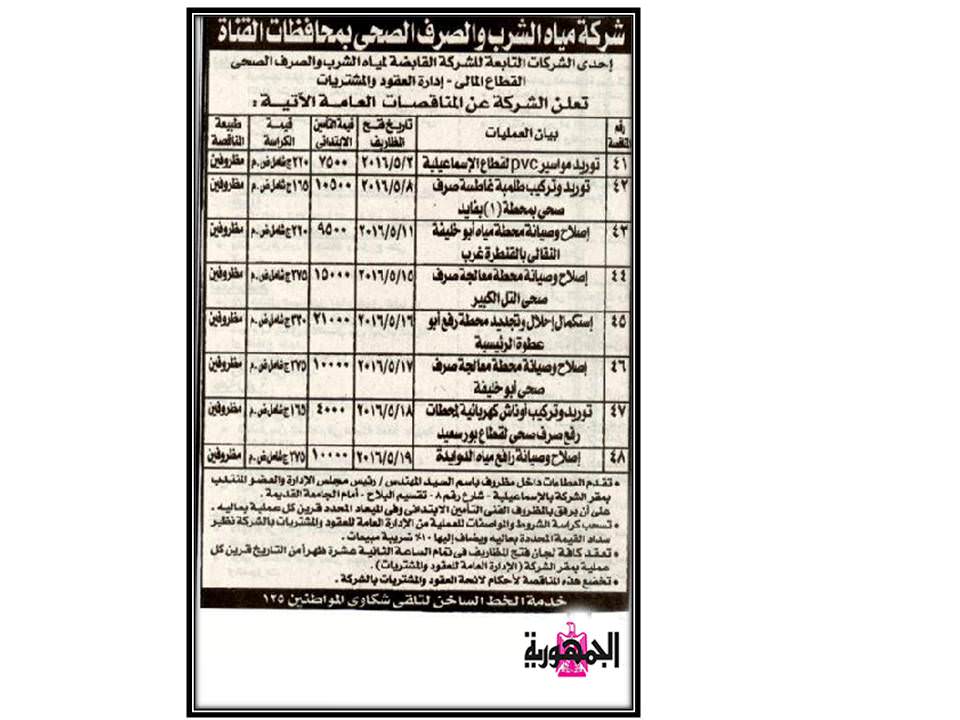 شركة مياه الشرب والصرف الصحى بمحافظات القناة
إحدى الشركات التابعة للشركة القابضة لمياه الشرب والصرف الصحى
القطاع المالى - إدارة العقود والمشتريات
تعلن الشركة عن المناقصات العامة الآتية :
رقم المناقسة بيان العمليات تاريخ فتح المظاريف قيمة التأمين الابتدائى قيمة الكراسة طبيعة المناقصة
٤١ توريد مواسير pvc لقطاع الإسماعيلية ٢٠١٦/٥/٢ ٧٥٠٠ ٢٢٠ج شامل ض.م مظروفين
٤٢ توريد وتركيب طلمبة غاطسة صرف ٢٠١٦/٥/٨ ١٠٥٠٠ ١٦٥ج شامل ض.م مظروفين
صحى بمحطة (١) بفايد
٤٣ إصلاح وصيانة محطة مياه أبو خليفة ٢٠١٦/٥/١١ ٩٥٠٠ ٢٢٠ج شامل ض.م مظروفين
النقالى بالقنطرة غرب
٤٤ إصلاح وصيانة محطة معالجة صرف ٢٠١٦/٥/١٥ ١٥٠٠٠ ٢٧٥ج شامل ض.م مظروفين
صحى التل الكبير
٤٥ إستكمال إحلال وتجديد محطة رفع أبو ٢٠١٦/٥/١٦ ٢١٠٠٠ ٣٣٠ج شامل ض.م مظروفين
عطوة الرئيسية
٤٦ إصلاح وصيانة محطة معالجة صرف ٢٠١٦/٥/١٧ ١٠٠٠٠ ٢٧٥ج شامل ض.م مظروفين
صحى أبو خليفة
٤٧ توريد وتركيب أوناش كهربائية لمحطات ٢٠١٦/٥/١٨ ٤٠٠٠ ١٦٥ج شامل ض.م مظروفين
رفع صرف صحى لقطاع بورسعيد
٤٨ إصلاح وصيانة رافع مياه الدوايدة ٢٠١٦/٥/١٩ ١٠٠٠٠ ٢٧٥ج شامل ض.م مظروفين
• تقدم العطاءات داخل مظروف باسم السيد المهندس / رئيس مجلس الإدارة والعضو المنتدب
بمقر الشركة بالإسماعيلية - شارع رقم ٨ - تقسيم البلاح - أمام الجامعة القديمة .
على أن يرفق بالمظروف الفنى التأمين الابتدائى وفى الميعاد المحدد قرين كل عملية بعاليه .
• تسحب كراسة الشروط والمواصفات للعملية من الإدارة العامة للعقود والمشتريات بالشركة نظير
سداد القيمة المحددة بعاليه ويضاف إليها ١٠٪ ضريبة مبيعات .
• تعقد كافة لجان فتح المظاريف فى تمام الساعة الثانية عشرة ظهراً من التاريخ قرين كل
عملية بمقر الشركة (الإدارة العامة للعقود والمشتريات) .
• تخضع هذه المناقصة لأحكام لائحة العقود والمشتريات بالشركة .
خدمة الخط الساخن لتلقى شكاوى المواطنين ١٢٥
الجمهورية